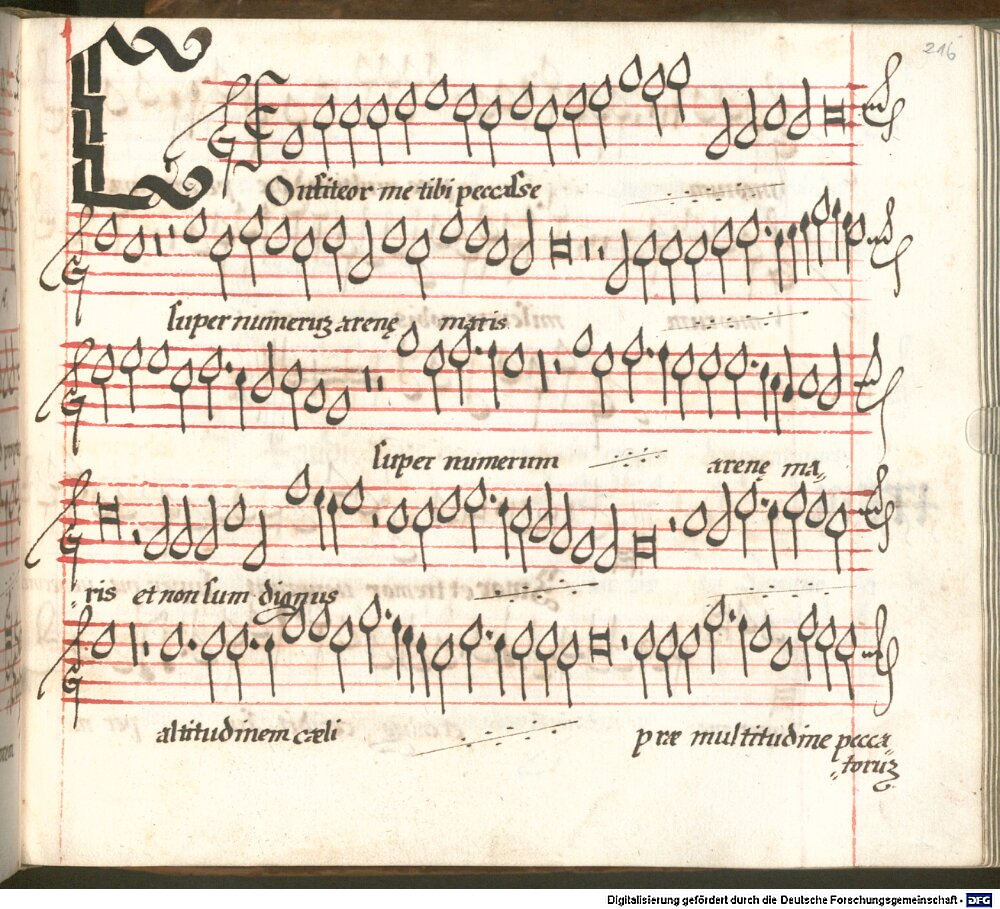 216
COnfiteor me tibi peccasse
super numeruʒ arenę maris
super numerum arenę ma„
„ris et non sum dignus
altitudinem cæli præ multitudine pecca„
„toruʒ
Digitalisierung gefördert durch die Deutsche Forschungsgemeinschaft - DFG